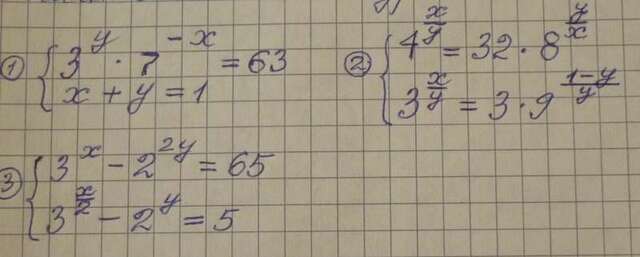 ① { 3^y · 7^{-x} = 63
x + y = 1
② { 4^{x/y} = 32 · 8^{y/x}
3^{x/y} = 3 · 9^{(1-y)/y}
③ { 3^x - 2^{2y} = 65
3^{x/2} - 2^y = 5